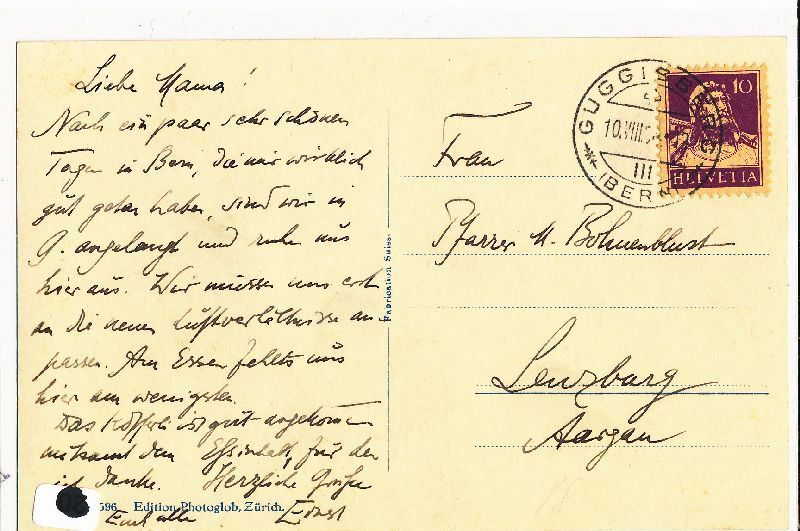 Liebe Mama!
Nach ein paar sehr schönen
Tagen in Bern, die mir wirklich
gut getan haben, sind wir in
G. angelangt und ruhen uns
hier aus. Wir müssen uns erst
an die neuen Luftverhältnisse an
passen. Am Essen fehlts uns
hier am wenigsten.
Das Köfferli ist gut angekommen
mitsamt dem Essinhalt, für den
ich danke. Herzliche Grüsse
Euch allen Ernst
596 Edition Photoglob, Zürich.
Fabrication Suisse.
GUGGISBERG
10.VIII.
III
(BERN)
10
HELVETIA
Frau
Pfarrer M. Bohnenblust
Lenzburg
Aargau